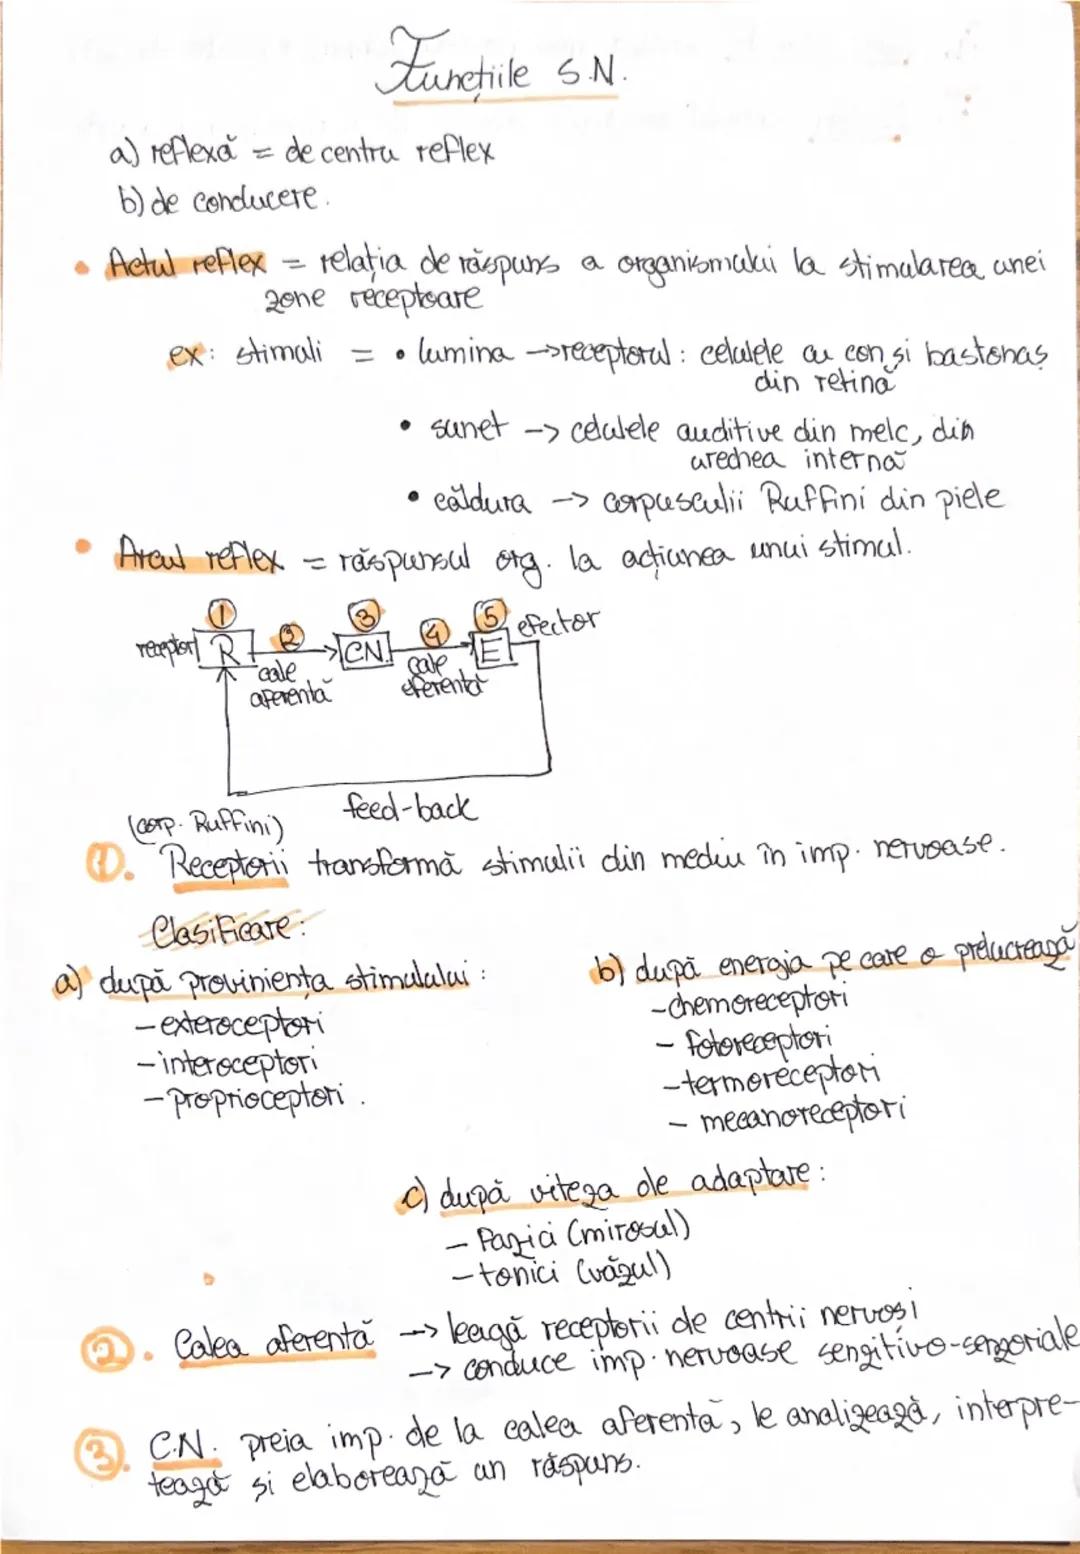 Funcțiile S.N.
a) reflexă = de centru reflex
b) de conducere.
• Actul reflex = relația de răspuns a organismului la stimularea unei
zone receptoare
ex: stimuli = • lumina → receptorul: celulele cu con și bastonaș
din retină
• sunet → celulele auditive din melc, din
urechea internă
• căldura → corpusculii Ruffini din piele
• Arcul reflex = răspunsul org. la acțiunea unui stimul.
1 2 3 4 5
receptor R CN. E efector
cale
aferentă
cale
eferentă
feed-back
(corp. Ruffini)
1. Receptorii transformă stimulii din mediu în imp. nervoase.
Clasificare:
a) după proviniența stimulului:
- exteroceptori
- interoceptori
- proprioceptori.
b) după energia pe care o prelucrează
- chemoreceptori
- fotoreceptori
- termoreceptori
- mecanoreceptori
c) după viteza de adaptare:
- fazici (mirosul)
- tonici (văzul)
2. Calea aferentă → leagă receptorii de centrii nervoși
→ conduce imp. nervoase senzitivo-senzoriale
3. C.N. preia imp. de la calea aferentă, le analizează, interpre-
tează și elaborează un răspuns.